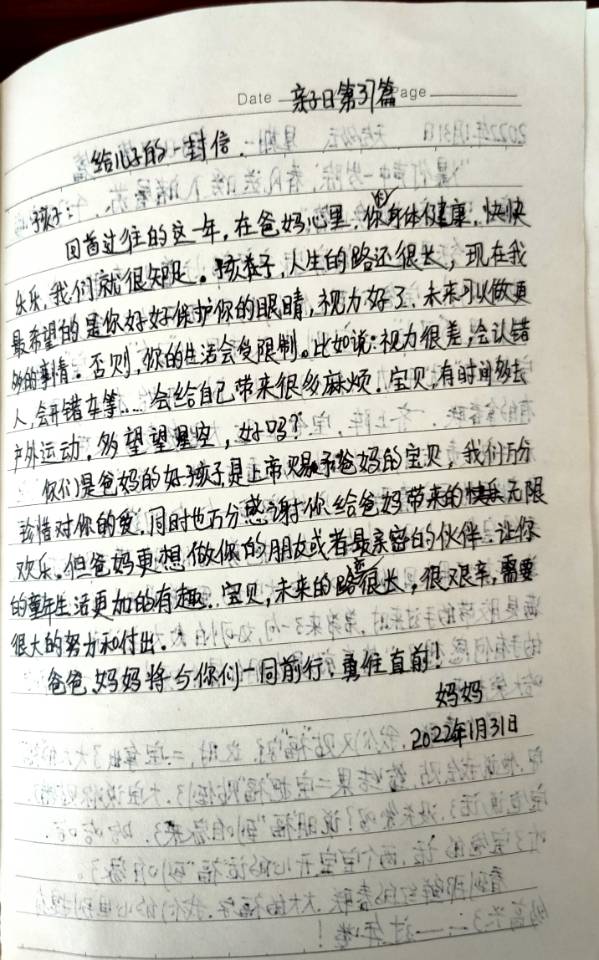 Date 亲子日第37篇 Page
给儿子的一封信.
孩子:
回首过往的这一年,在爸妈心里,你们身体健康,快快
乐乐,我们就很知足。孩子,人生的路还很长,现在我
最希望的是你好好保护你的眼睛,视力好了,未来可以做更
多的事情。否则,你的生活会受限制。比如说:视力很差,会认错
人,会开错车等....会给自己带来很多麻烦.宝贝,有时间多去
户外运动,多望望星空,好吗?
你们是爸妈的好孩子是上帝赐予爸妈的宝贝,我们万分
珍惜对你的爱,同时也万分感谢你给爸妈带来的无限
欢乐.但爸妈更想做你的朋友或者最亲密的伙伴.让你
的童年生活更加的有趣..宝贝,未来的路很长,很艰辛,需要
很大的努力和付出.
爸爸、妈妈将与你们一同前行,勇往直前!
妈妈
2022年1月31日